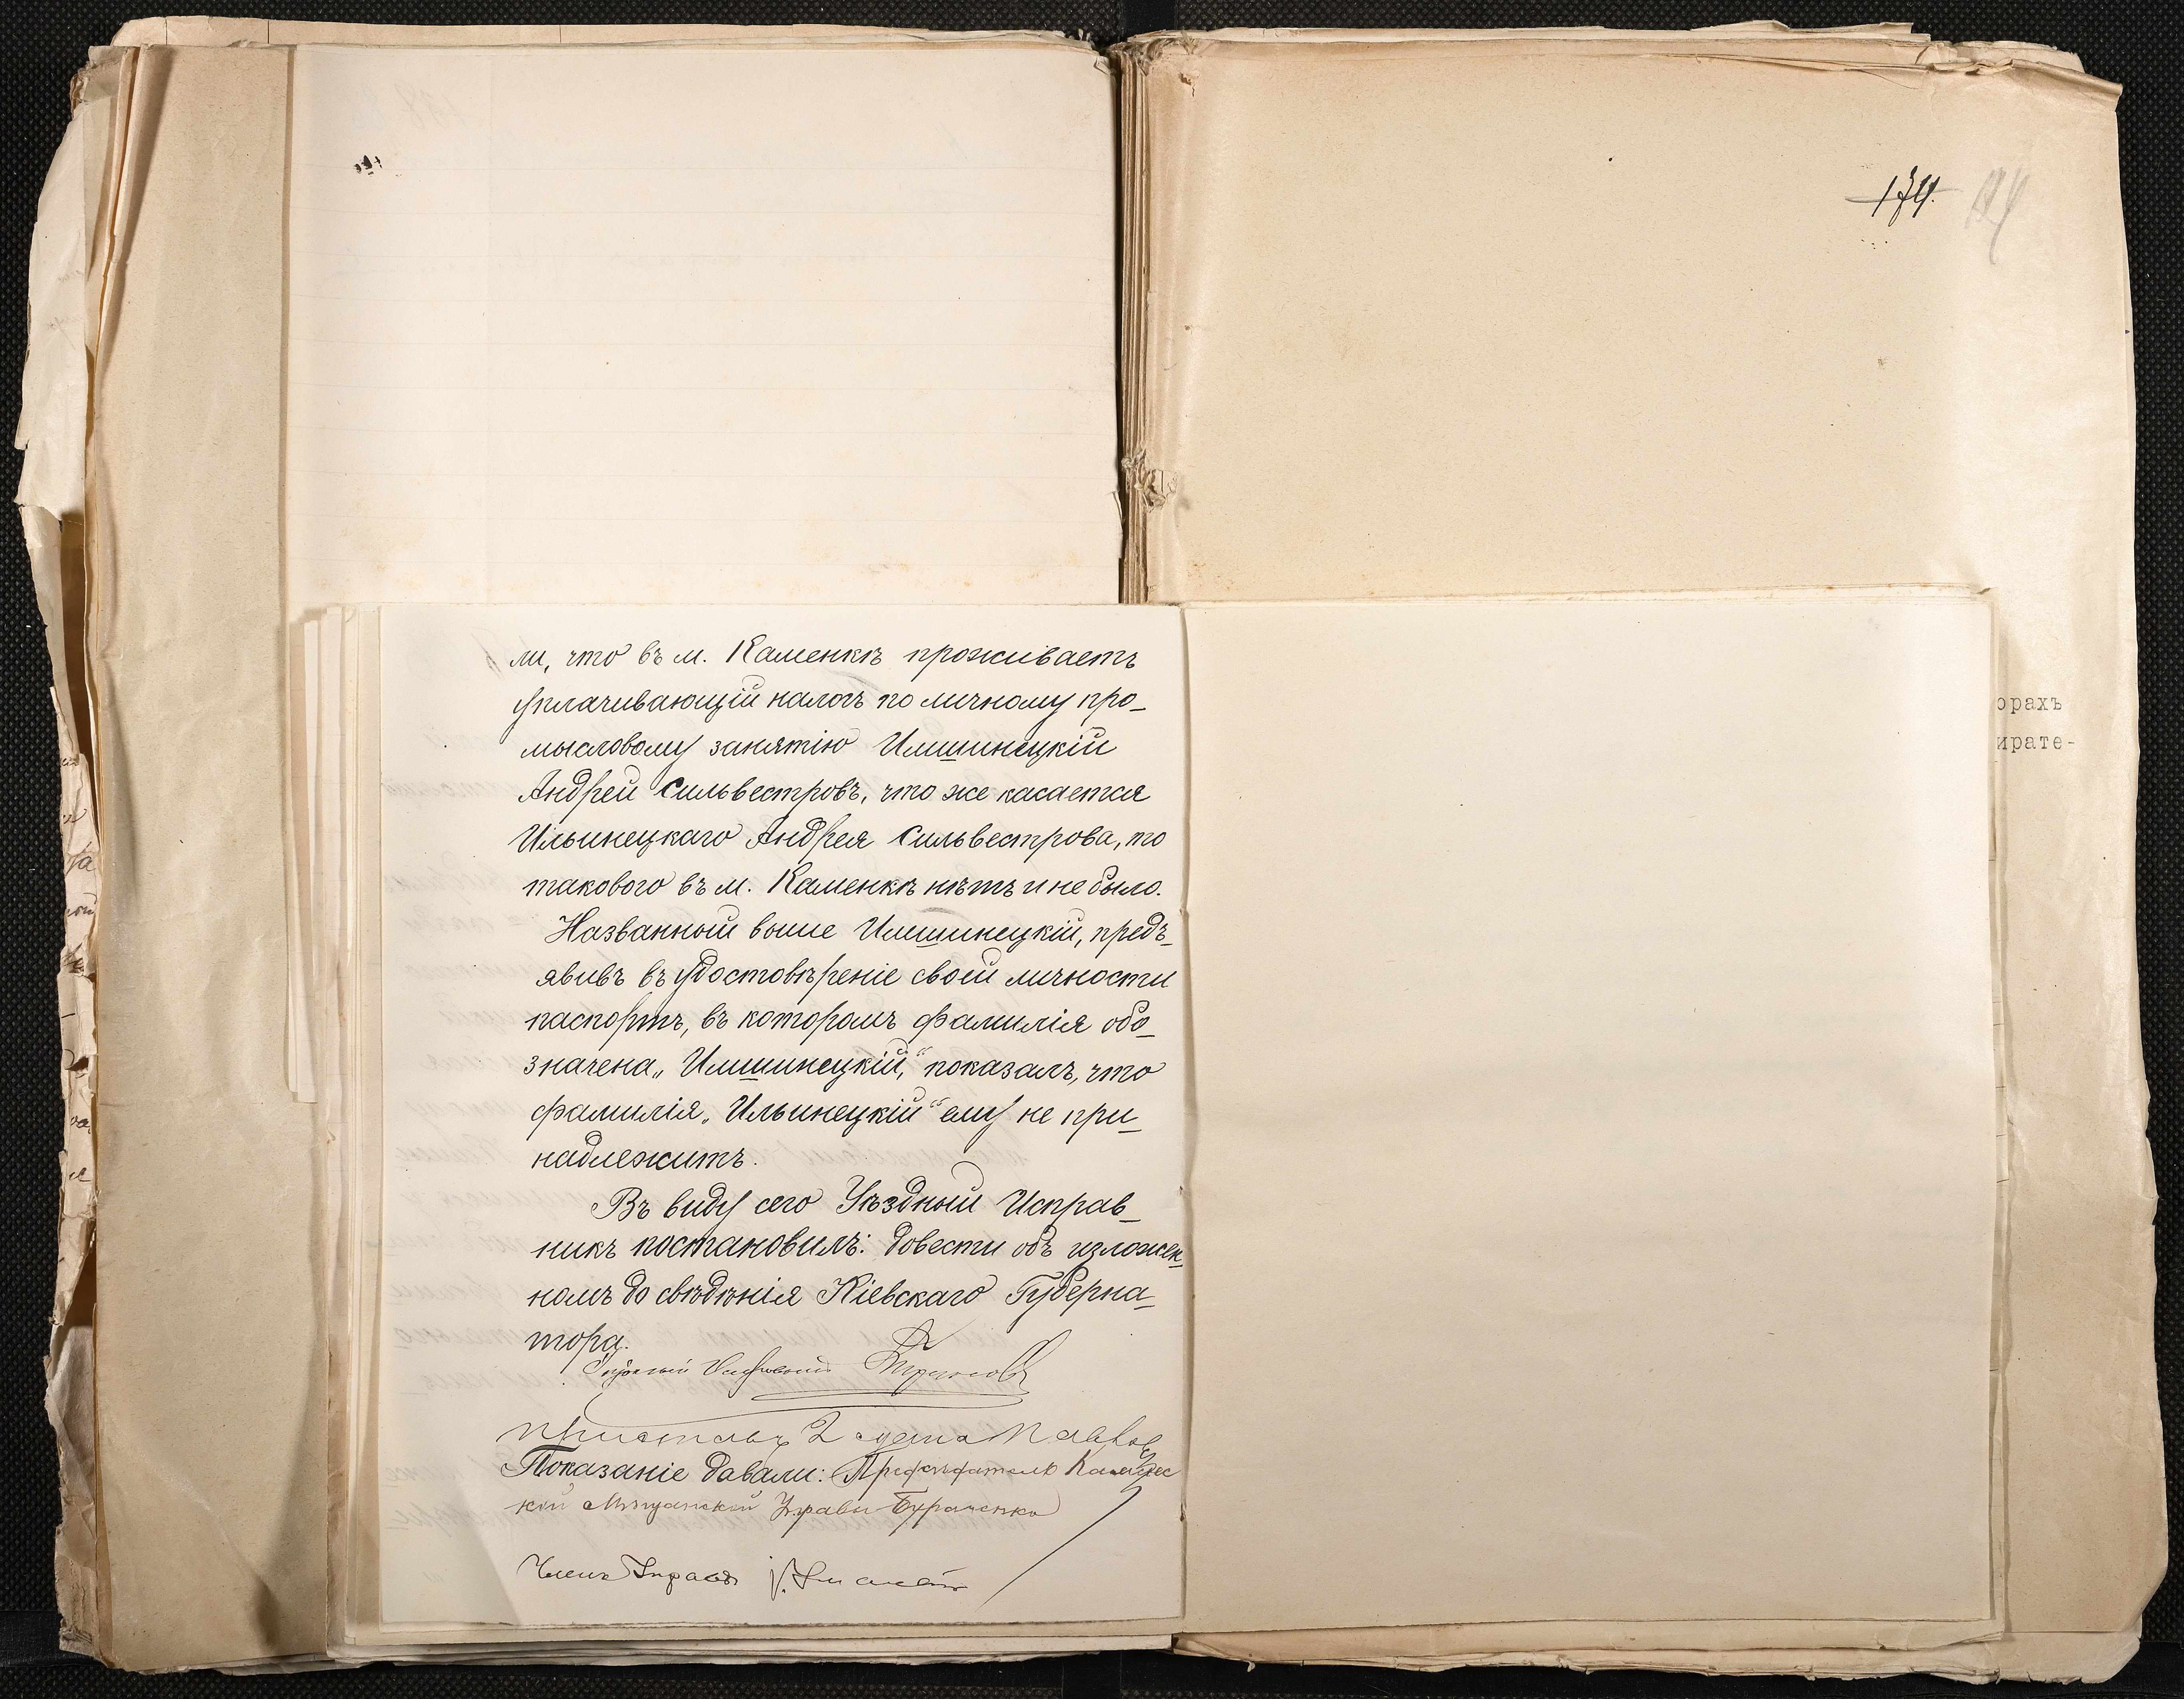 174.
ли, что въ м. Каменкѣ проживаетъ
уплачивающій налогъ по личному про-
мысловому занятію Илишинецкій
Андрей Сильвестровъ, что же касается
Ильинецкаго Андрея Сильвестрова, то
такового въ м. Каменкѣ нѣтъ и не было.
Названный выше Илишинецкій, предъ-
явивъ въ удостовѣреніе своей личности
паспортъ, въ которомъ фамилія обо-
значена „Илишинецкій,“ показалъ, что
фамилія „Ильинецкій“ ему не при-
надлежитъ.
Въ виду сего Уѣздный Исправ-
никъ постановилъ: довести объ изложен-
номъ до свѣдѣнія Кіевскаго Губерна-
тора.
Уѣздный Исправникъ
Приставъ 2 стана
Показаніе давали: Предсѣдатель
кой Мѣщанской Управы Бураченко
Членъ Управы
орахъ
ирате-